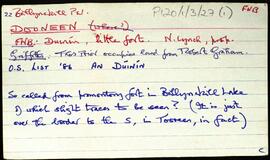 22 Ballynakill Par. P120/1/3/27 (1) FNB
DOONEEN (where?)
FNB: Duinín, little fort. N. Lynch, prop.
Griffith: This Brid occupies land from Robert Graham.
O.S. LIST '86 AN DÚINÍN
So called from promontory fort in Ballynakill Lake
of which slight traces to be seen? (It is just
over the border to the S, in Tooreen, in fact)
C